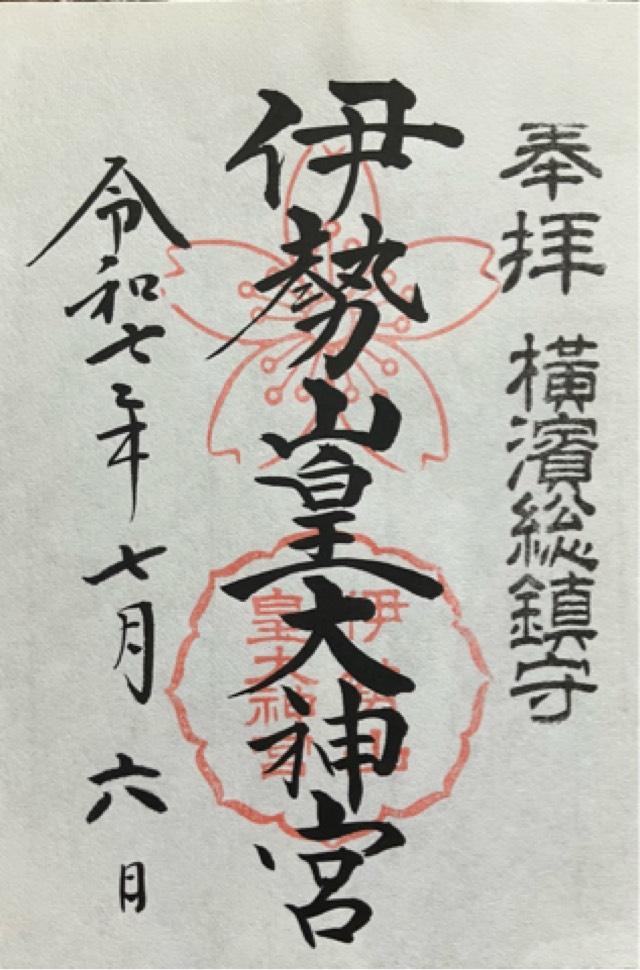 奉拝
横濱総鎮守
伊勢山皇大神宮
伊勢山
皇大神宮
令和七年七月六日